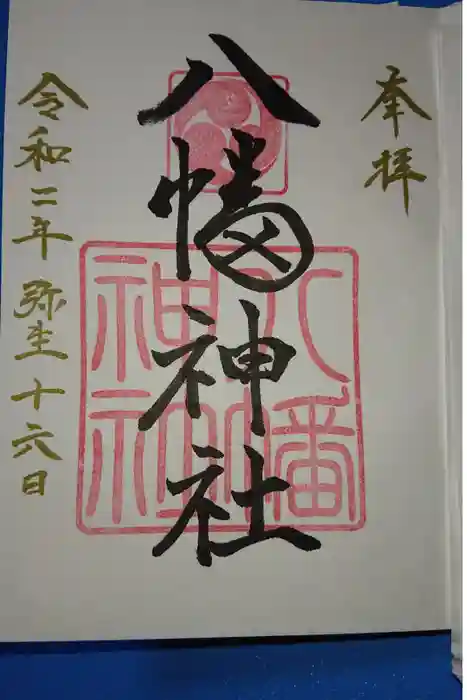 奉拝
八幡神社
八幡神社
令和二年弥生十六日